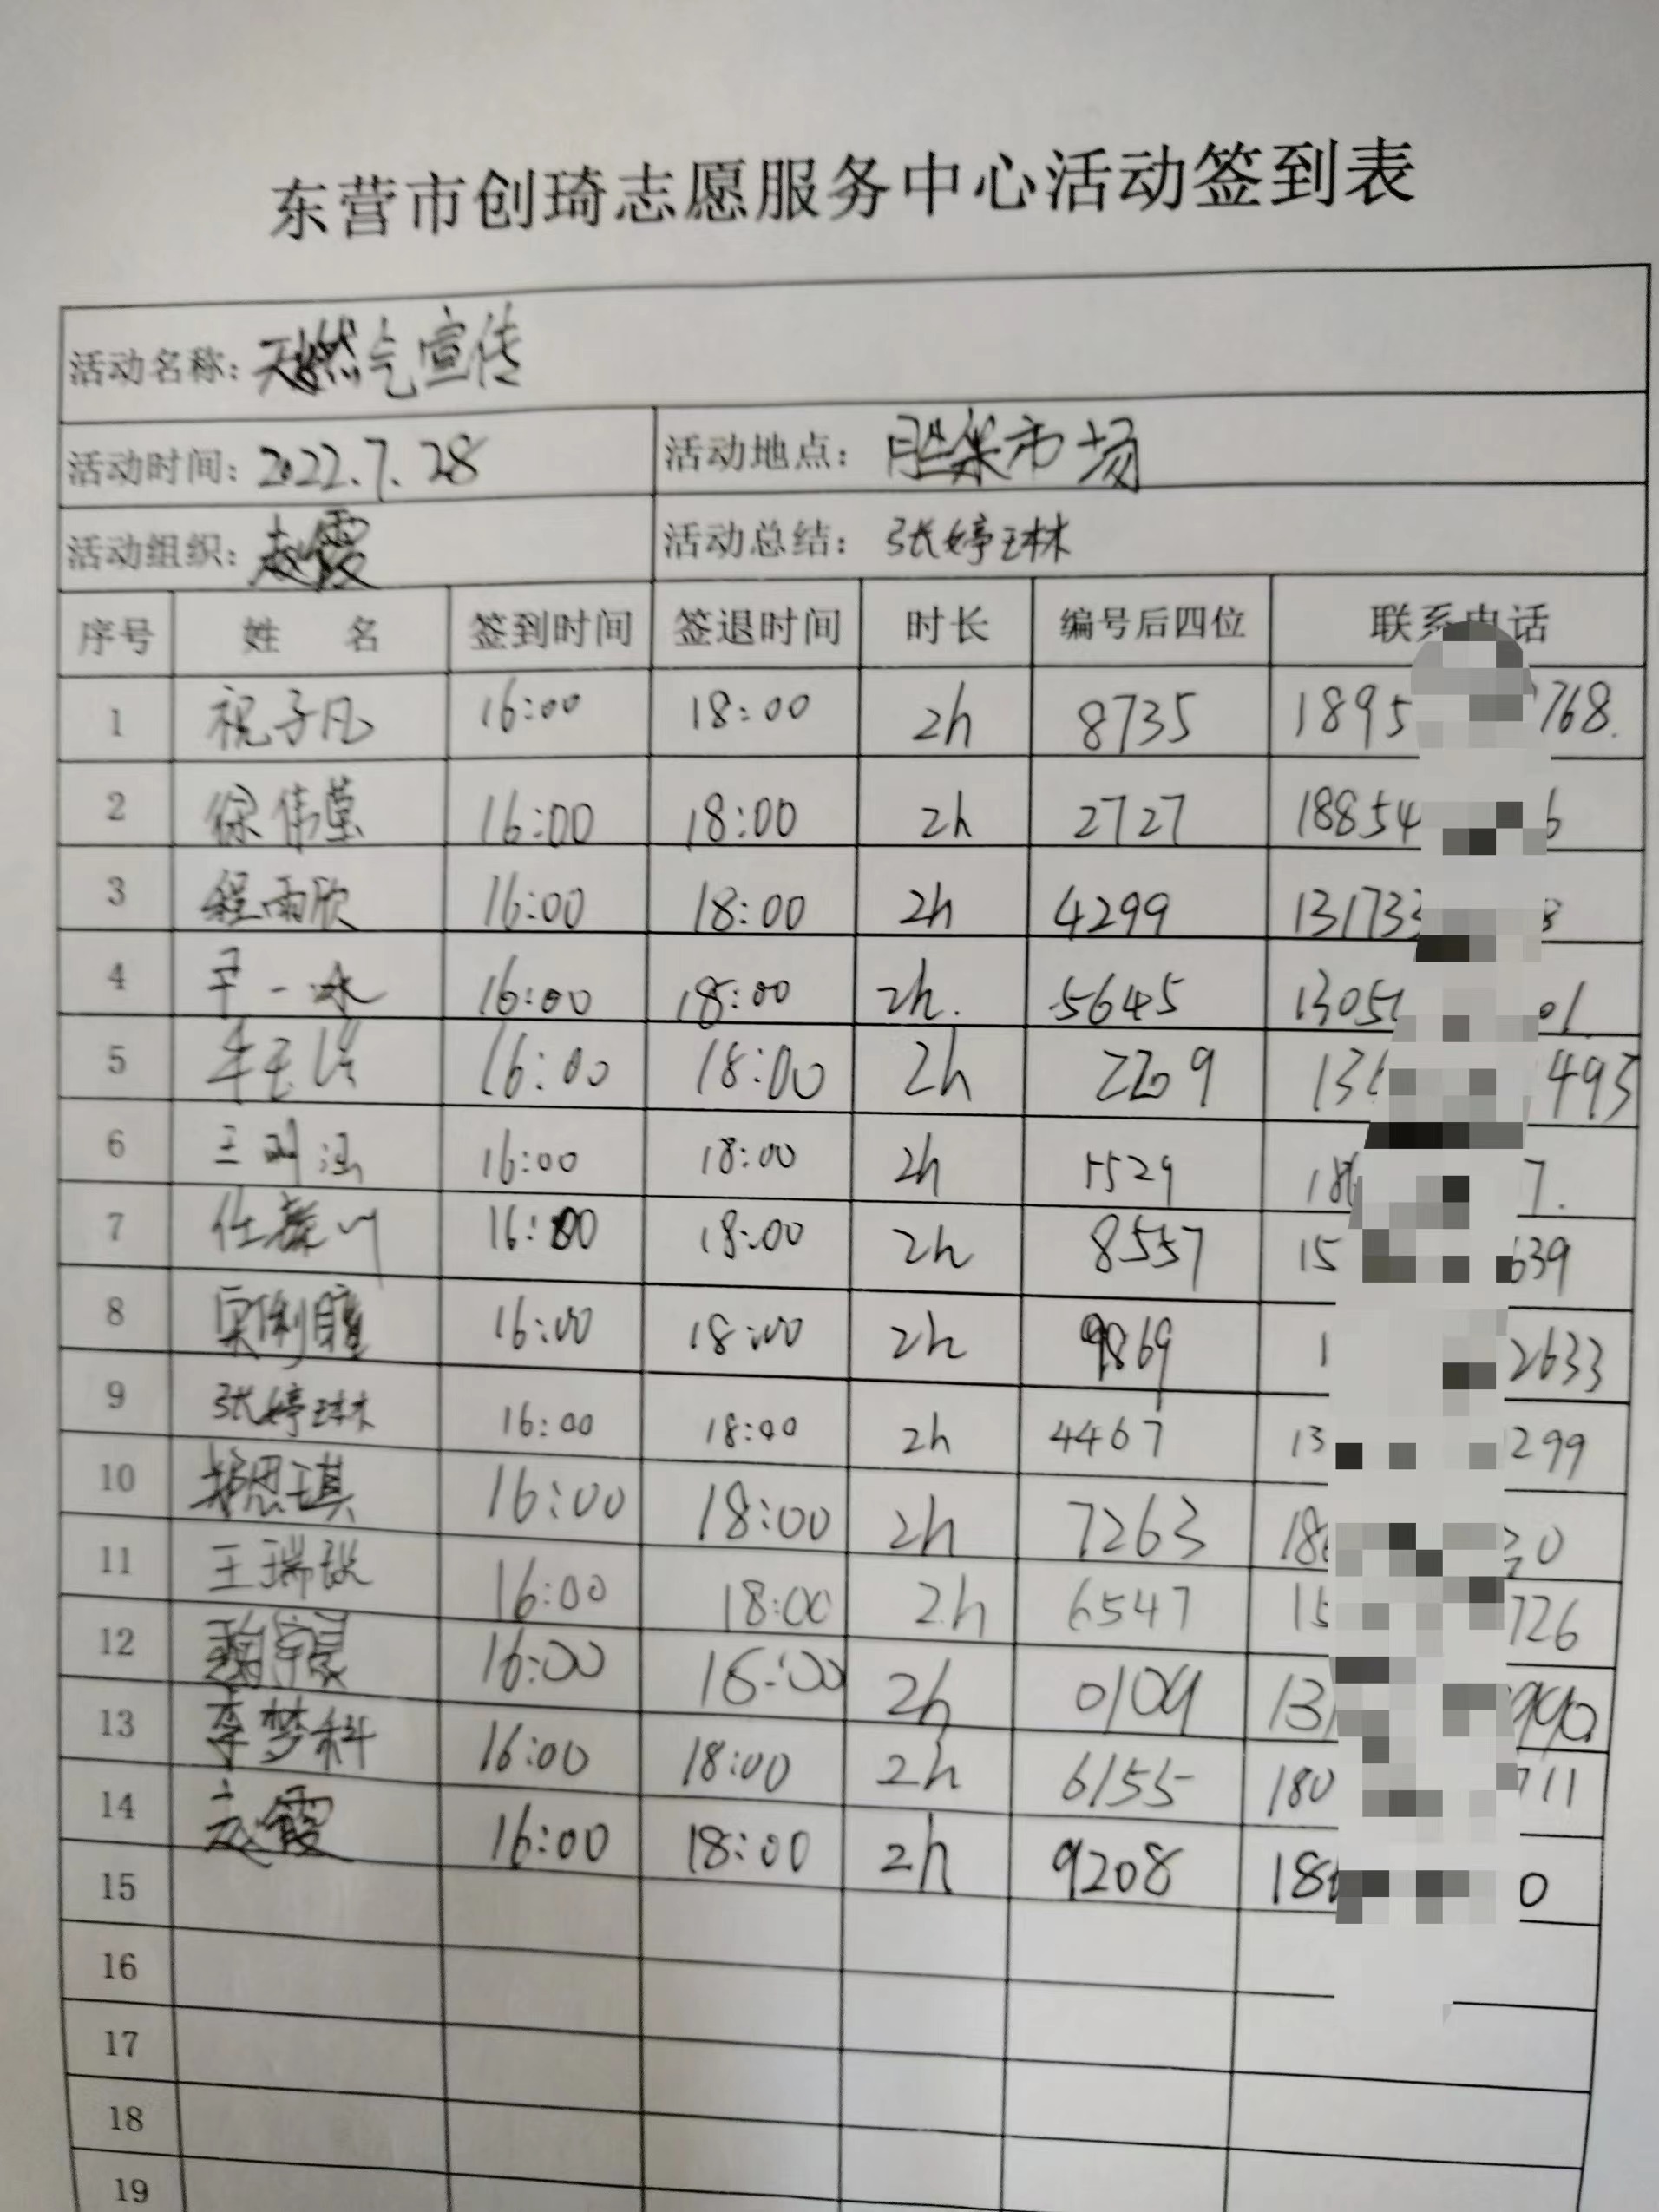 东营市创琦志愿服务中心活动签到表
活动名称：天然气宣传
活动时间：2022.7.28 活动地点：胜采市场
活动组织：赵霞 活动总结：张婷琳
序号 姓名 签到时间 签退时间 时长 编号后四位 联系电话
1 祝子凡 16:00 18:00 2h 8735 1895 768.
2 徐伟莹 16:00 18:00 2h 2727 18854 6
3 程雨欣 16:00 18:00 2h 4299 13173
4 16:00 18:00 2h. 5645 1305 01
5 16:00 18:00 2h 2209 13 493
6 16:00 18:00 2h 1529 18 7.
7 16:00 18:00 2h 8557 15 639
8 16:00 18:00 2h 9869 1 2633
9 张婷琳 16:00 18:00 2h 4467 13 299
10 16:00 18:00 2h 7263 18 0
11 王瑞 16:00 18:00 2h 6547 15 726
12 16:00 18:00 2h 0109 13 990
13 李梦科 16:00 18:00 2h 6155 180 711
14 赵霞 16:00 18:00 2h 9208 18 0
15
16
17
18
19